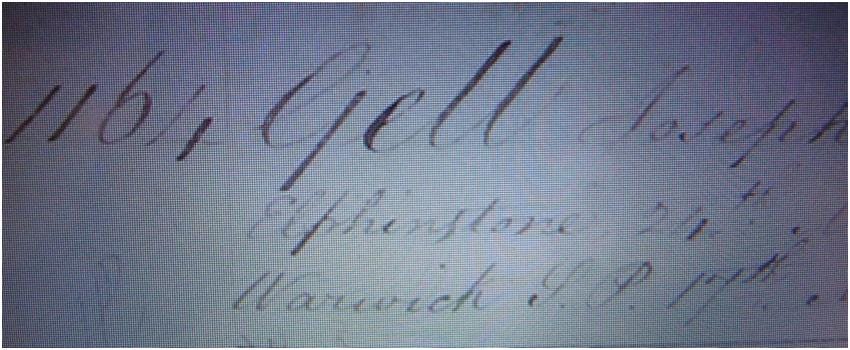 116/1 Gell Joseph
Elphinstone 24th.
Warwick S. P. 17th.